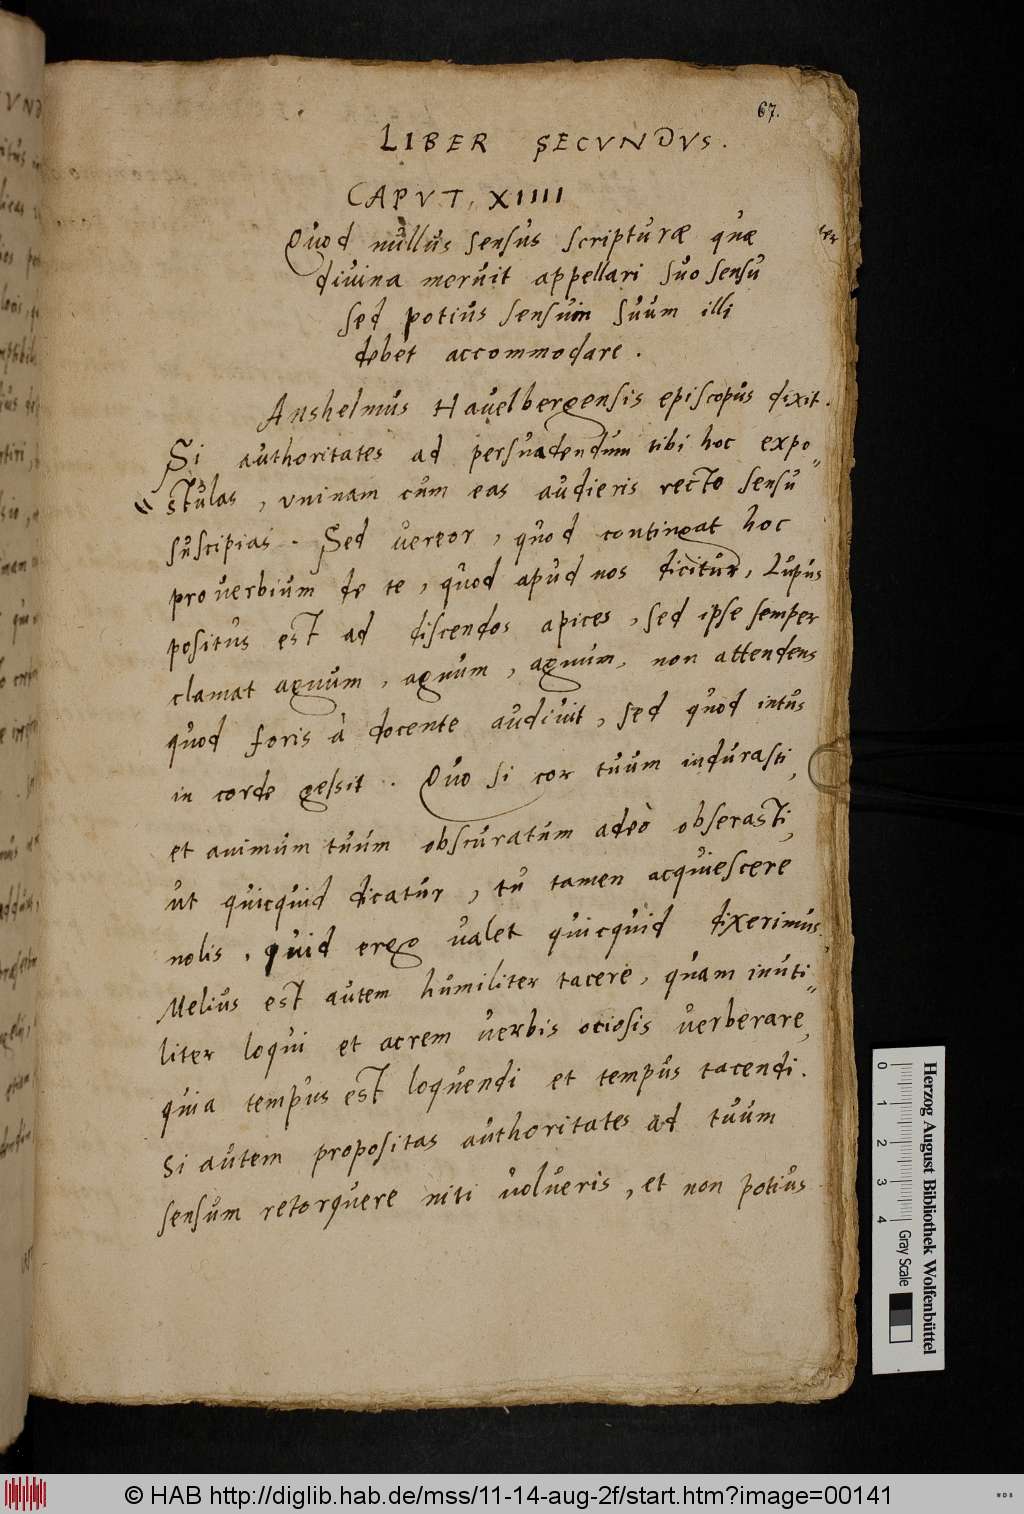 67.
LIBER SECVNDVS.
CAPVT, XIIII
Quod nullus sensus scripturæ quæ
divina meruit appellari suo sensu
sed potius sensum suum illi
debet accommodare.
Anshelmus Havelbergensis episcopus dixit.
Si authoritates ad persuadendum tibi hoc expo„
stulas, vninam cum eas audieris recto sensu
suscipias. Sed vereor, quod contingat hoc
proverbium de te, quod apud nos dicitur, Lupus
positus est ad discendos apices, sed ipse semper
clamat agnum, agnum, agnum, non attendens
quod foris à docente audivit, sed quod intus
in corde gessit. Quo si cor tuum indurasti,
et animum tuum obscuratum adeò obserasti,
ut quicquid dicatur, tu tamen acquiescere
nolis, quid ergo valet quicquid dixerimus.
Melius est autem humiliter tacere, quam inuti„
liter loqui et acrem verbis ociosis verberare,
quia tempus est loquendi et tempus tacendi.
Si autem propositas authoritates ad tuum
sensum retorquere niti volueris, et non potius
Herzog August Bibliothek Wolfenbüttel
0 1 2 3 4 Gray Scale
© HAB http://diglib.hab.de/mss/11-14-aug-2f/start.htm?image=00141